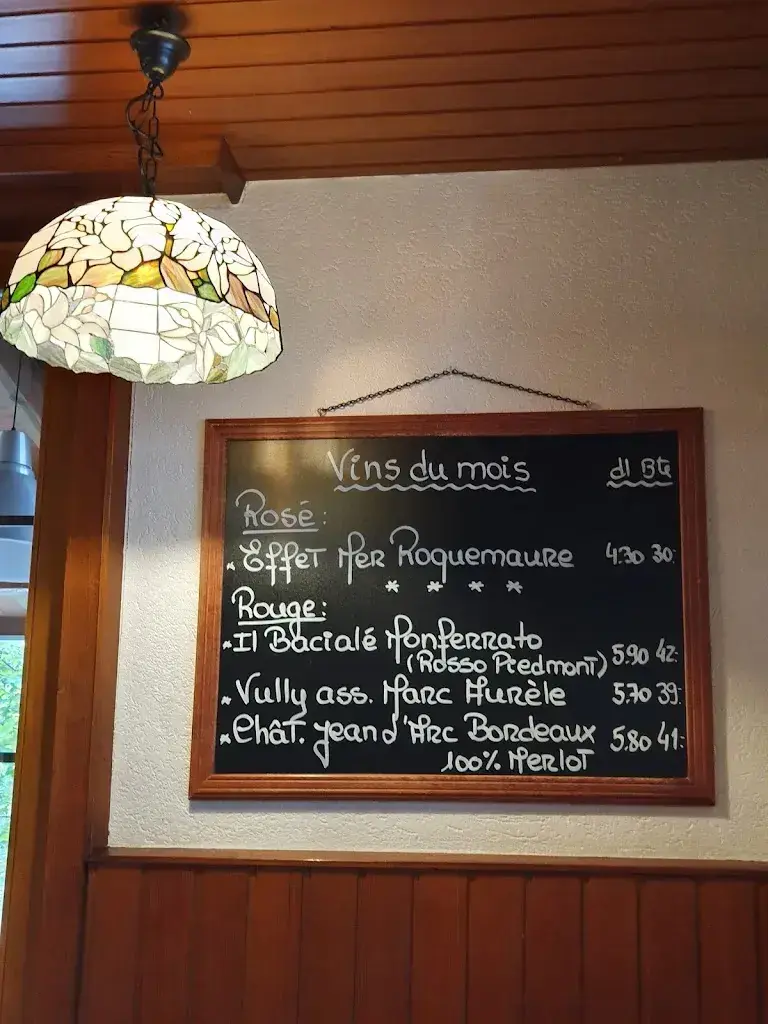 Vins du mois dl Bte
Rosé:
* Effet Mer Roquemaure 4.30 30.-
* * * *
Rouge:
* Il Bacialé Monferrato
(Rosso Piedmont) 5.90 42.-
* Vully ass. Marc Aurèle 5.70 39.-
* Chât. Jean d'Arc Bordeaux 5.80 41.-
100% Merlot